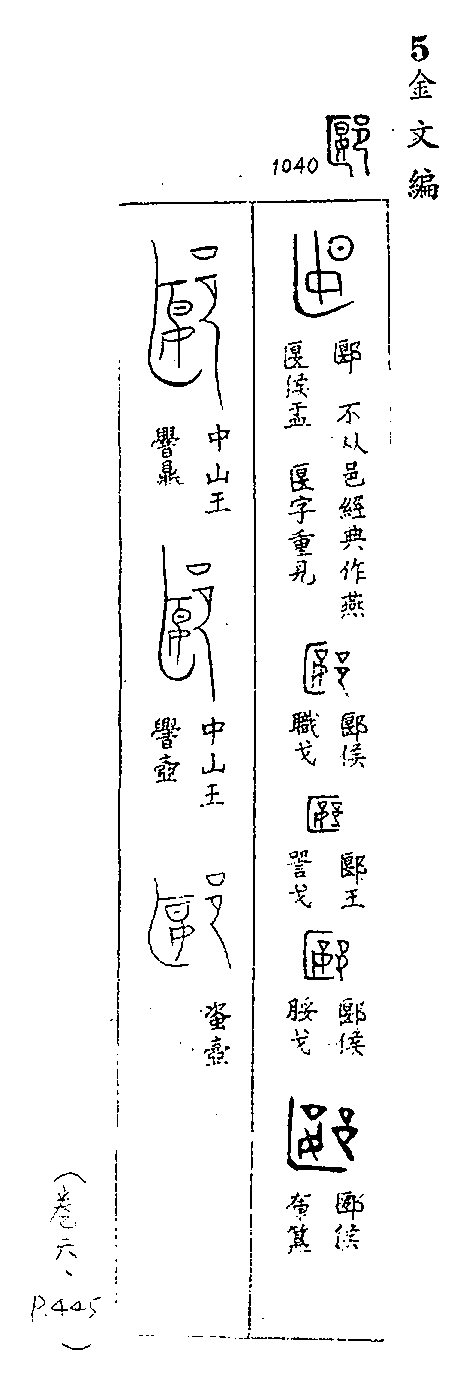 5金文編
郾
1040
郾 不从邑經典作燕
匽侯盂 匽字重見
郾侯
職戈
郾王
詈戈
郾侯
脮戈
郾侯
簋
中山王
鼎
中山王
壺
蚉壺
（卷六、
P.445）